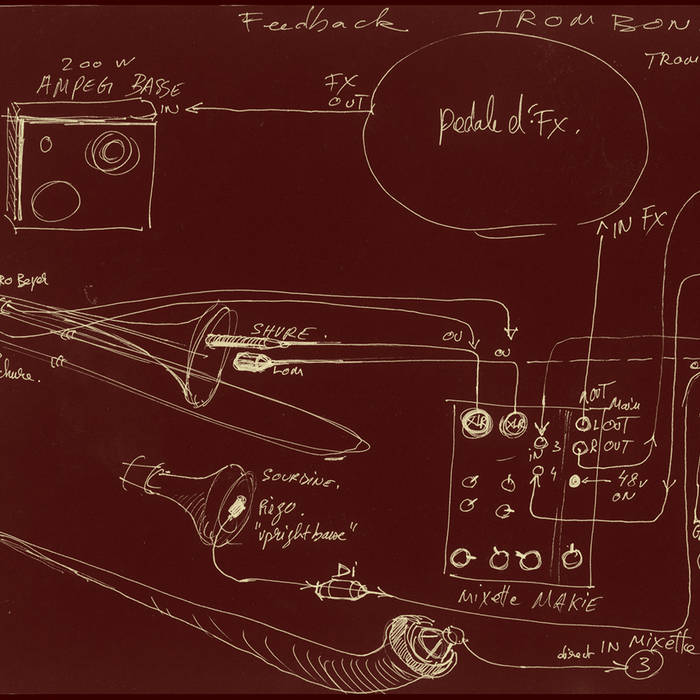 Feedback TROMBON
TROM
200 W
AMPEG BASSE
IN
FX
OUT
pedale d'Fx.
IN FX
RO Beyer
SHURE.
LOM
OU
OU
hure.
XLR
XLR
OUT
Main
L OUT
R OUT
IN
3
4
48V
ON
SOURDINE.
Piezo.
"upright basse"
DI
Mixette MAKIE
direct IN Mixette
3